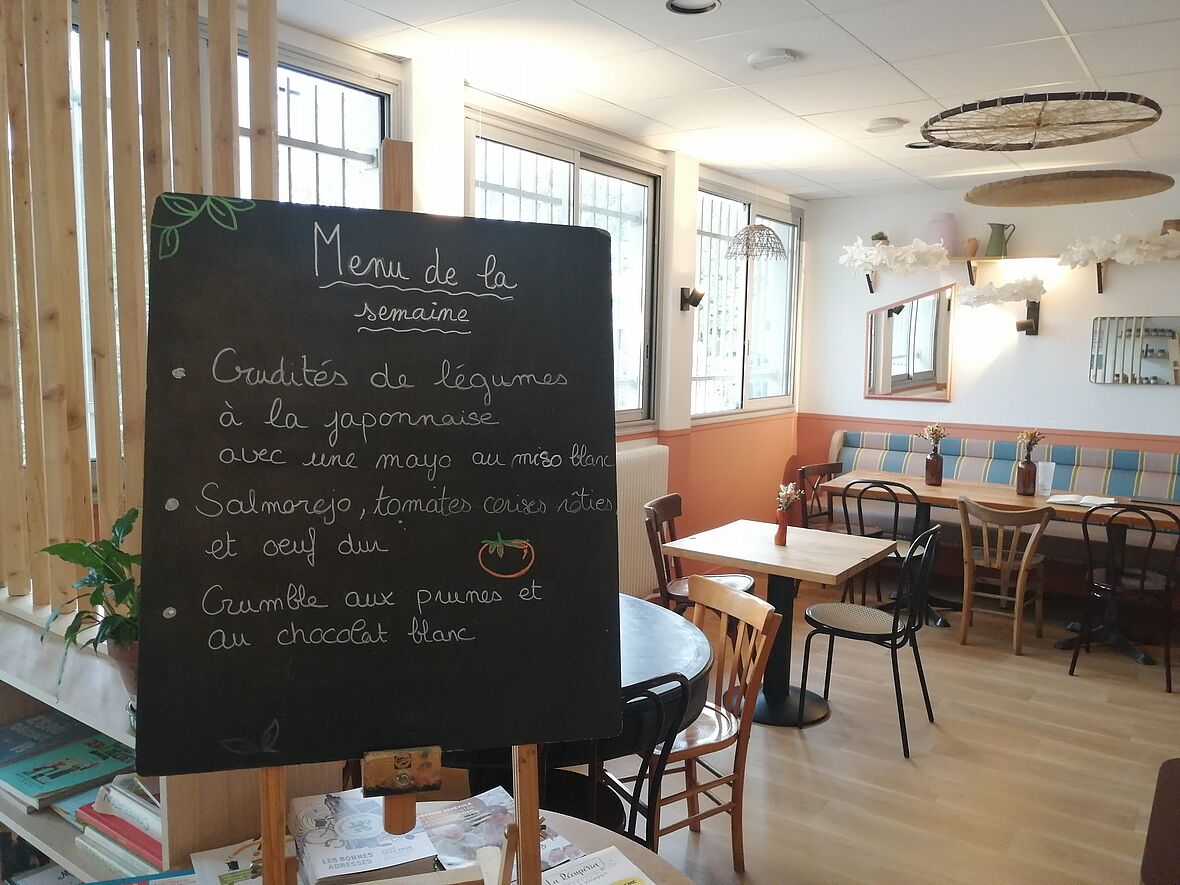 Menu de la
semaine
• Crudités de légumes
à la japonnaise
avec une mayo au miso blanc
• Salmorejo, tomates cerises rôties
et oeuf dur
• Crumble aux prunes et
au chocolat blanc
LES BONNES
ADRESSES
La Récupéria